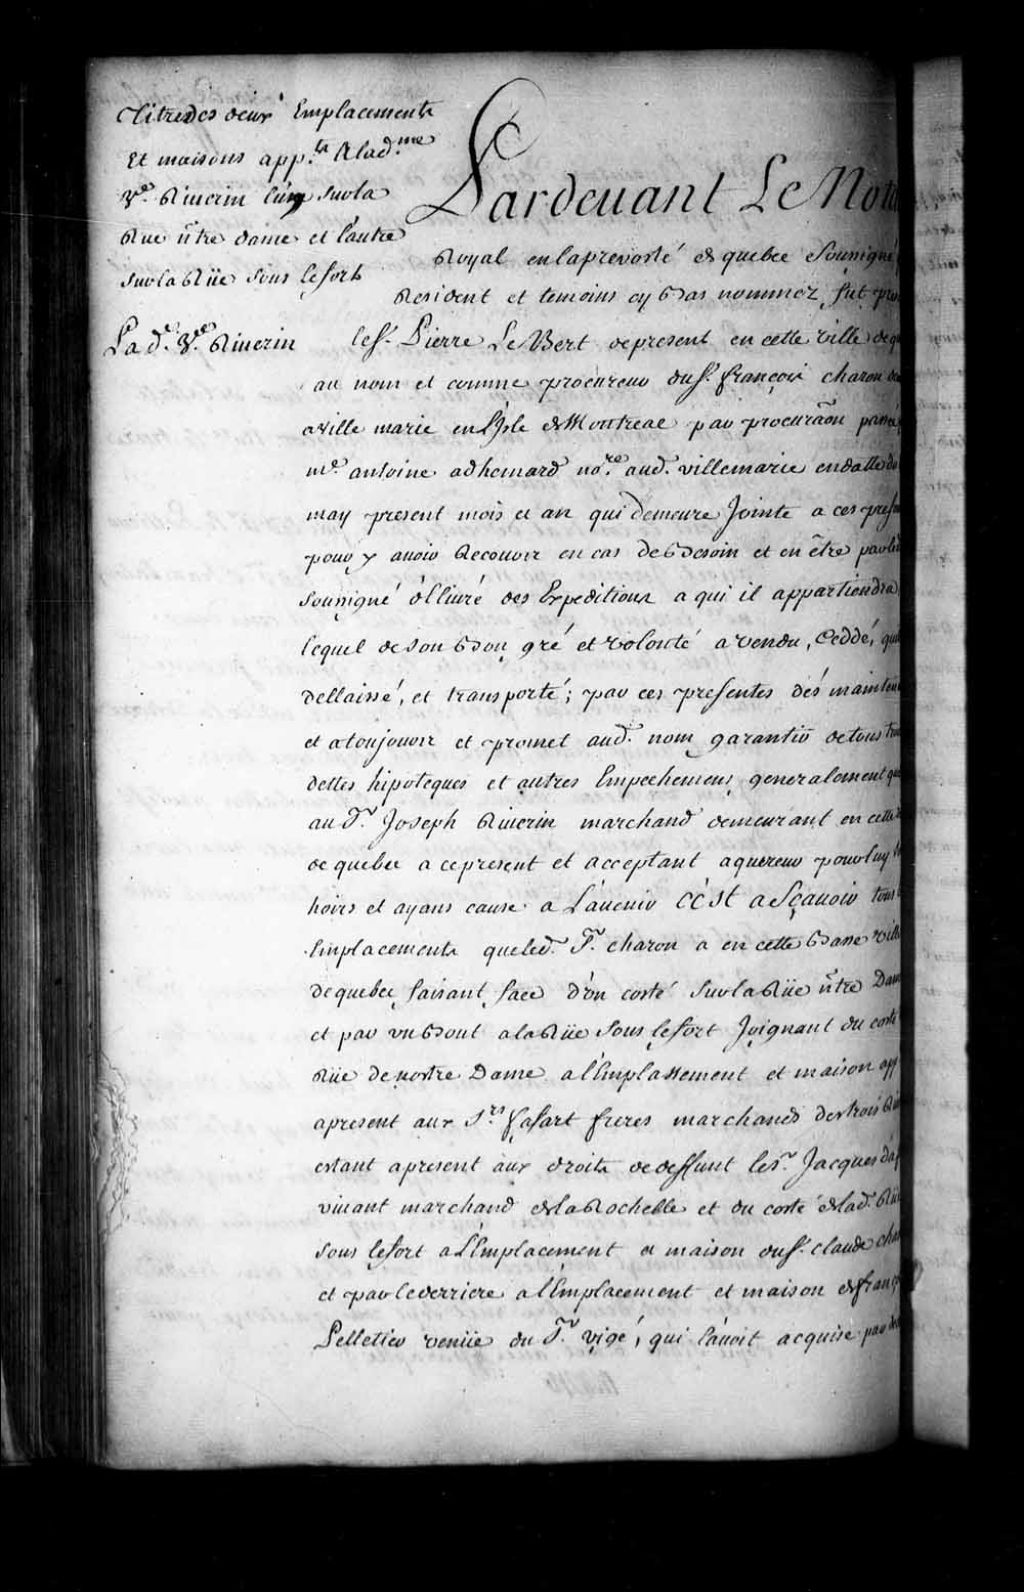 Titre des deux Emplacements
Et maisons app.te A lad.me
V.e Riuerin l'un sur la
Rue ñtre dame et l'autre
sur la Rüe sous le fort
La d.e V.e Riuerin
Pardeuant Le Nota
Royal en la prevosté de quebec soussigné
Resident et temoins cy bas nommez, fut pres
le s.r Pierre Le Ber de present en cette ville de q
au nom et comme procureur du s.r françois charon
a ville marie en l'Isle de Montreal par procuraõn passé
m.e antoine adhemard no.re aud. villemarie en datte du
may present mois et an qui demeure Jointe a ces pres
pour y auoir Recours en cas de besoin et en être par led
soussigné dellivré des Expeditions a qui il appartiendra,
lequel de son bon gré et volonté a vendu, Ceddé, qui
dellaissé, et transporté; par ces presentes dés mainten
et a toujours et promet aud. nom garantir de tous trou
dettes hipoteques et autres Empechemens generalement que
au S.r Joseph Riuerin marchand demeurant en cette
de quebec a ce present et acceptant aquereur pour luy
hoirs et ayans cause a L'auenir CCst a Sçauoir tous
Emplacements que led. S.r charon a en cette basse vill
de quebec faisant face d'un costé sur la Rüe ñtre Dam
et par vn bout a la Rüe sous le fort Joignant du costé
Rüe de nostre Dame a l'Emplassement et maison app
apresent aux S.rs fafart freres marchands des trois Ri
estant apresent aux droits de deffunt le s.r Jacques
viuant marchand de la Rochelle et du costé de lad. Rüe
sous le fort a L'Emplacement et maison du s.r claude cha
et par le derriere a l'Emplacement et maison de franç
Pelletier venüe du S.r vigé, qui l'auoit acquise par